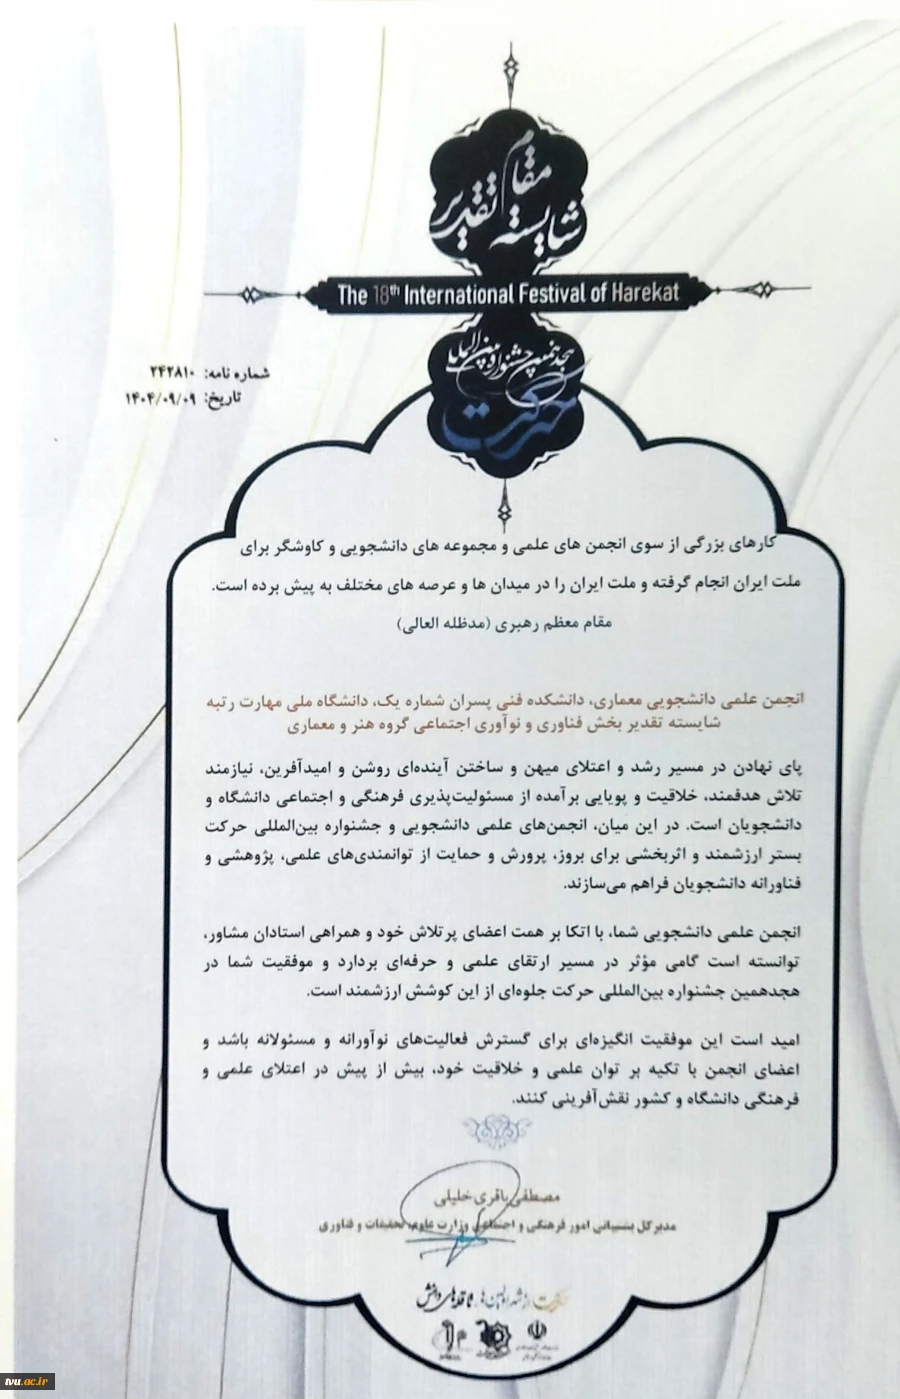 مقام
شایسته تقدیر
The 18th International Festival of Harekat
هجدهمین جشنواره بین المللی
حرکت
شماره نامه: ۲۴۲۸۱۰
تاریخ: ۱۴۰۴/۰۹/۰۹
کارهای بزرگی از سوی انجمن های علمی و مجموعه های دانشجویی و کاوشگر برای
ملت ایران انجام گرفته و ملت ایران را در میدان ها و عرصه های مختلف به پیش برده است.
مقام معظم رهبری (مدظله العالی)
انجمن علمی دانشجویی معماری، دانشکده فنی پسران شماره یک، دانشگاه ملی مهارت رتبه
شایسته تقدیر بخش فناوری و نوآوری اجتماعی گروه هنر و معماری
پای نهادن در مسیر رشد و اعتلای میهن و ساختن آینده‌ای روشن و امیدآفرین، نیازمند
تلاش هدفمند، خلاقیت و پویایی برآمده از مسئولیت‌پذیری فرهنگی و اجتماعی دانشگاه و
دانشجویان است. در این میان، انجمن‌های علمی دانشجویی و جشنواره بین‌المللی حرکت
بستر ارزشمند و اثربخشی برای بروز، پرورش و حمایت از توانمندی‌های علمی، پژوهشی و
فناورانه دانشجویان فراهم می‌سازند.
انجمن علمی دانشجویی شما، با اتکا بر همت اعضای پرتلاش خود و همراهی استادان مشاور،
توانسته است گامی مؤثر در مسیر ارتقای علمی و حرفه‌ای بردارد و موفقیت شما در
هجدهمین جشنواره بین‌المللی حرکت جلوه‌ای از این کوشش ارزشمند است.
امید است این موفقیت انگیزه‌ای برای گسترش فعالیت‌های نوآورانه و مسئولانه باشد و
اعضای انجمن با تکیه بر توان علمی و خلاقیت خود، بیش از پیش در اعتلای علمی و
فرهنگی دانشگاه و کشور نقش‌آفرینی کنند.
مصطفی باقری خلیلی
مدیرکل پشتیبانی امور فرهنگی و اجتماعی وزارت علوم، تحقیقات و فناوری
حرکت از
tvu.ac.ir